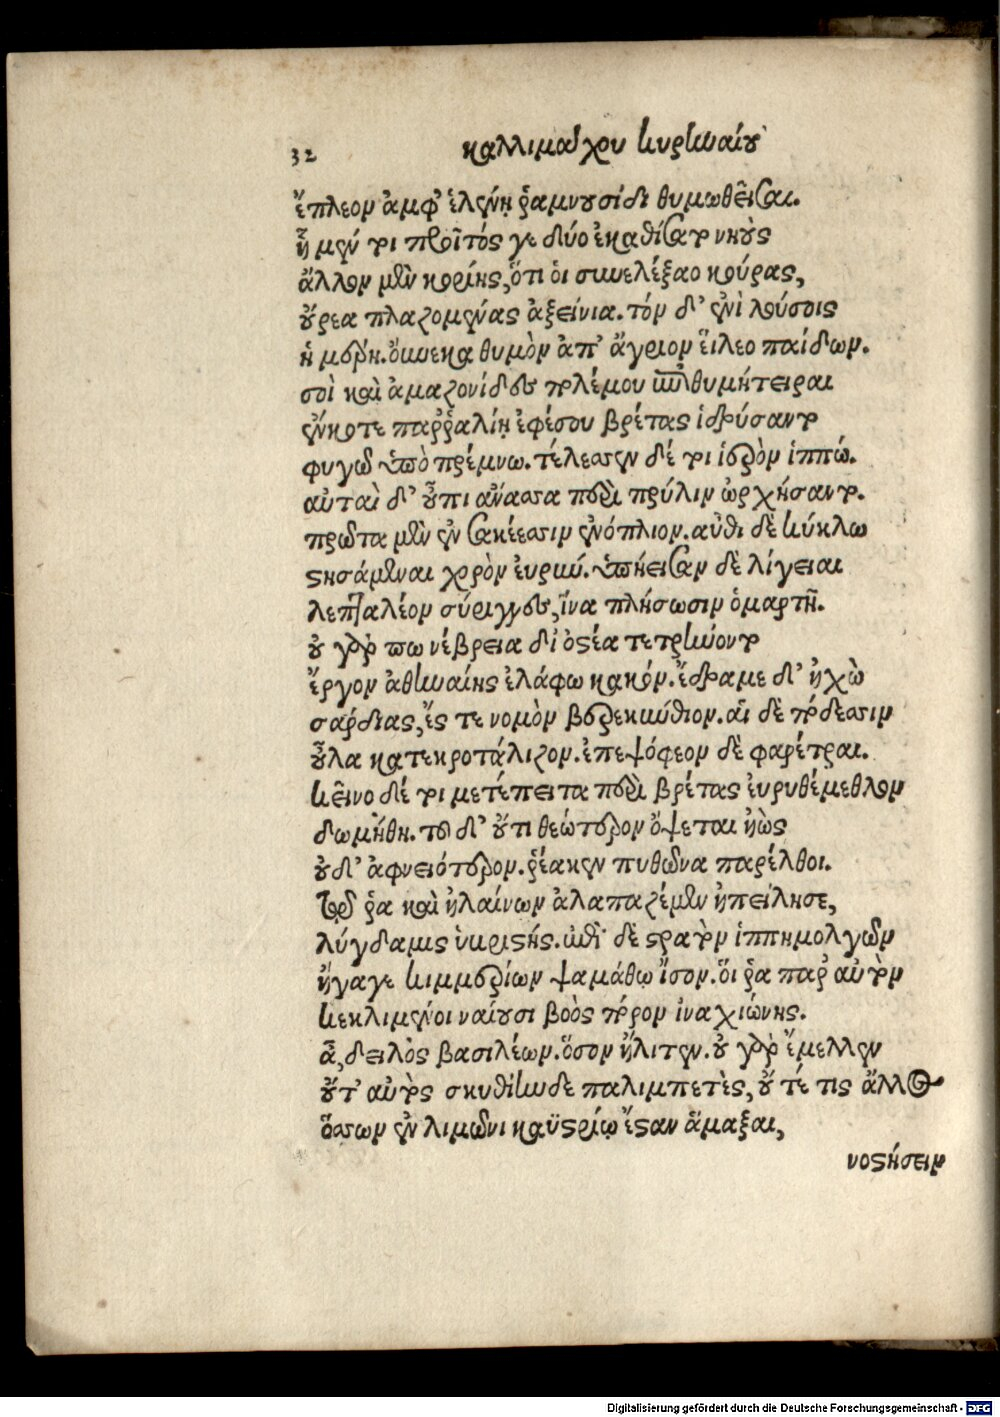 32 καλλιμάχου κυρηναίου
ἔπλεον ἀμφ' ἑλένῃ ῥαμνουσίδι θυμωθεῖσαι.
ἦ μέν τοι προῖτός γε δύο ἐκαθίσατο νηοὺς
ἄλλον μὲν κορίης, ὅτι οἱ συνελέξαο κούρας,
οὔρεα πλαζομένας ἀξείνια. τὸν δ' ἐνὶ λούσοις
ἡμέρῃ. οὕνεκα θυμὸν ἀπ' ἄγριον εἵλεο παίδων.
σοὶ καὶ ἀμαζονίδες πολέμου ἐπιθυμήτειραι
ἔν κοτε παρραλίῃ ἐφέσου βρέτας ἱδρύσαντο
φυγῶ ὑπὸ πρέμνω. τέλεσεν δέ τοι ἱερὸν ἱππώ.
αὐταὶ δ' οὖπι ἄνασσα περὶ πρύλιν ὠρχήσαντο.
πρῶτα μὲν ἐν σακέεσσιν ἐνόπλιον. αὖθι δὲ κύκλω
στησάμεναι χορὸν εὐρύν. ὑπήεισαν δὲ λίγειαι
λεπταλέον σύριγγες, ἵνα πλήσωσιν ὁμαρτῇ.
οὐ γάρ πω νέβρεια δι' ὀστέα τετρήνοντο
ἔργον ἀθηναίης ἐλάφω κακόν. ἔδραμε δ' ἠχὼ
σάρδιας, ἔς τε νομὸν βερεκύνθιον. αἱ δὲ πόδεσσιν
οὖλα κατεκροτάλιζον. ἐπεψόφεον δὲ φαρέτραι.
κεῖνο δέ τοι μετέπειτα περὶ βρέτας εὐρυθέμεθλον
δωμήθη. τοῦ δ' οὔτι θεώτερον ὄψεται ἠὼς
οὐδ' ἀφνειότερον. ῥέα κεν πυθῶνα παρέλθοι.
τῷ ῥα καὶ ἠλαίνων ἀλαπαζέμεν ἠπείλησε,
λύγδαμις ὑβριστής. ἐπὶ δὲ στρατὸν ἱππημολγῶν
ἤγαγε κιμμερίων ψαμάθῳ ἴσον. οἵ ῥα παρ' αὐτὸν
κεκλιμένοι ναίουσι βοὸς πόρον ἰναχιώνης.
ἆ, δειλὸς βασιλέων. ὅσον ἤλιτεν. οὐ γὰρ ἔμελλεν
οὔτ' αὐτὸς σκυθίηνδε παλιμπετὲς, οὔτέ τις ἄλλος
ὅσσων ἐν λιμῶνι καϋστρίῳ ἔσταν ἅμαξαι,
νοστήσειν
Digitalisierung gefördert durch die Deutsche Forschungsgemeinschaft - DFG